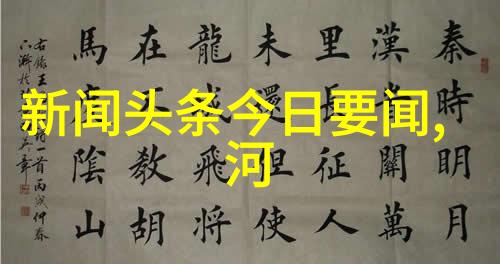 新闻头条今日要闻,
河
秦時明月
漢時關萬
里長征人
未還但使
龍城飛將
在不教胡
馬度陰山